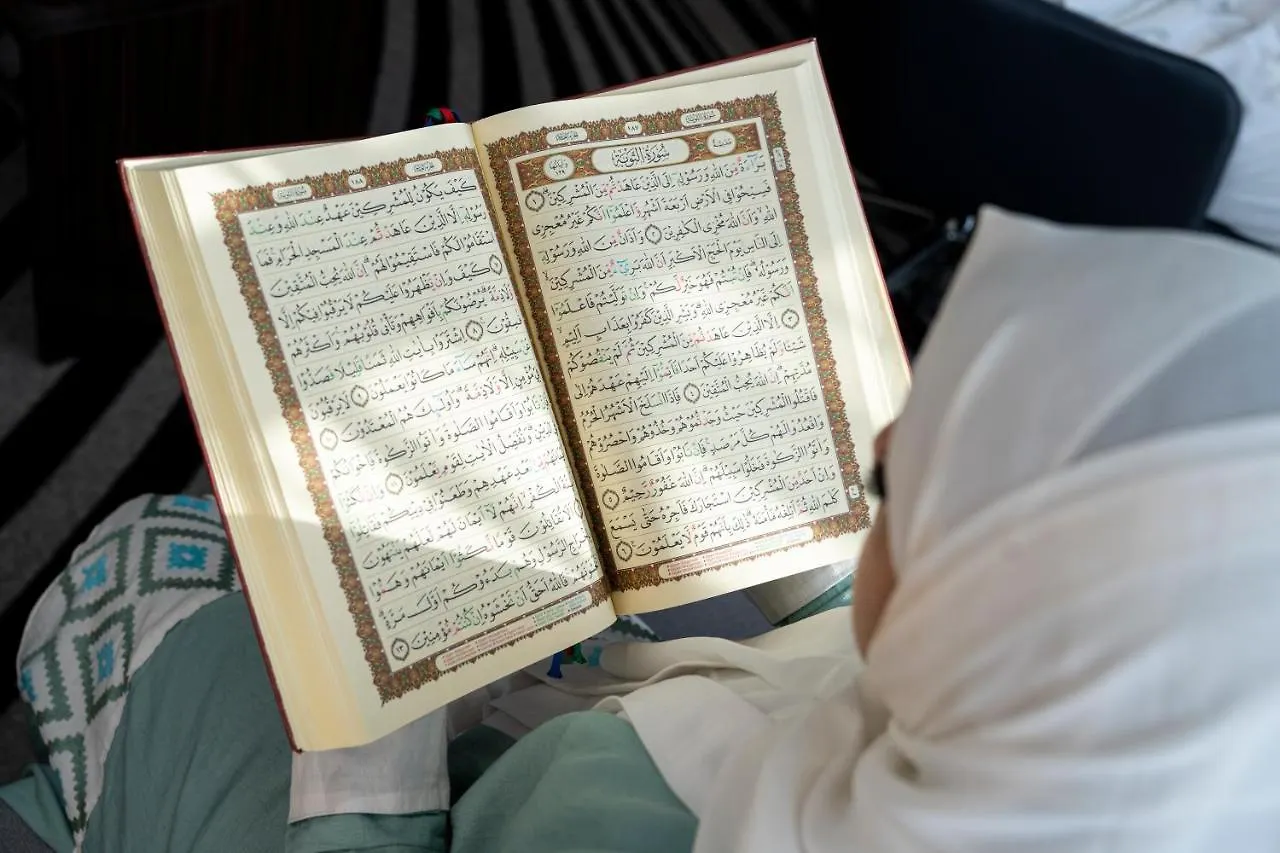 سُورَةُ التَّوْبَةِ
١٨٧
سُورَةُ التَّوْبَةِ
بَرَآءَةٌ مِّنَ اللَّهِ وَرَسُولِهِ إِلَى الَّذِينَ عَاهَدتُّم مِّنَ الْمُشْرِكِينَ ١
فَسِيحُوا فِي الْأَرْضِ أَرْبَعَةَ أَشْهُرٍ وَاعْلَمُوا أَنَّكُمْ غَيْرُ مُعْجِزِي
اللَّهِ وَأَنَّ اللَّهَ مُخْزِي الْكَٰفِرِينَ ٢ وَأَذَانٌ مِّنَ اللَّهِ وَرَسُولِهِ
إِلَى النَّاسِ يَوْمَ الْحَجِّ الْأَكْبَرِ أَنَّ اللَّهَ بَرِيٓءٌ مِّنَ الْمُشْرِكِينَ
وَرَسُولُهُ فَإِن تُبْتُمْ فَهُوَ خَيْرٌ لَّكُمْ وَإِن تَوَلَّيْتُمْ فَاعْلَمُوا
أَنَّكُمْ غَيْرُ مُعْجِزِي اللَّهِ وَبَشِّرِ الَّذِينَ كَفَرُوا بِعَذَابٍ أَلِيمٍ
٣ إِلَّا الَّذِينَ عَاهَدتُّم مِّنَ الْمُشْرِكِينَ ثُمَّ لَمْ يَنقُصُوكُمْ
شَيْئًا وَلَمْ يُظَاهِرُوا عَلَيْكُمْ أَحَدًا فَأَتِمُّوا إِلَيْهِمْ عَهْدَهُمْ إِلَى
مُدَّتِهِمْ إِنَّ اللَّهَ يُحِبُّ الْمُتَّقِينَ ٤ فَإِذَا انسَلَخَ الْأَشْهُرُ الْحُرُمُ
فَاقْتُلُوا الْمُشْرِكِينَ حَيْثُ وَجَدتُّمُوهُمْ وَخُذُوهُمْ وَاحْصُرُوهُمْ
وَاقْعُدُوا لَهُمْ كُلَّ مَرْصَدٍ فَإِن تَابُوا وَأَقَامُوا الصَّلَوٰةَ
وَآتَوُا الزَّكَوٰةَ فَخَلُّوا سَبِيلَهُمْ إِنَّ اللَّهَ غَفُورٌ رَّحِيمٌ ٥
وَإِنْ أَحَدٌ مِّنَ الْمُشْرِكِينَ اسْتَجَارَكَ فَأَجِرْهُ حَتَّىٰ يَسْمَعَ
كَلَٰمَ اللَّهِ ثُمَّ أَبْلِغْهُ مَأْمَنَهُ ذَٰلِكَ بِأَنَّهُمْ قَوْمٌ لَّا يَعْلَمُونَ ٦
سُورَةُ التَّوْبَةِ
١٨٨
كَيْفَ يَكُونُ لِلْمُشْرِكِينَ عَهْدٌ عِندَ اللَّهِ وَعِندَ
رَسُولِهِ إِلَّا الَّذِينَ عَاهَدتُّمْ عِندَ الْمَسْجِدِ الْحَرَامِ فَمَا
اسْتَقَامُوا لَكُمْ فَاسْتَقِيمُوا لَهُمْ إِنَّ اللَّهَ يُحِبُّ الْمُتَّقِينَ
٧ كَيْفَ وَإِن يَظْهَرُوا عَلَيْكُمْ لَا يَرْقُبُوا فِيكُمْ إِلًّا
وَلَا ذِمَّةً يُرْضُونَكُم بِأَفْوَاهِهِمْ وَتَأْبَىٰ قُلُوبُهُمْ وَأَكْثَرُهُمْ
٨ اشْتَرَوْا بِآيَاتِ اللَّهِ ثَمَنًا قَلِيلًا فَصَدُّوا
عَن سَبِيلِهِ إِنَّهُمْ سَآءَ مَا كَانُوا يَعْمَلُونَ ٩ لَا يَرْقُبُونَ
مُؤْمِنٍ إِلًّا وَلَا ذِمَّةً وَأُولَٰئِكَ هُمُ الْمُعْتَدُونَ ١٠
تَابُوا وَأَقَامُوا الصَّلَوٰةَ وَآتَوُا الزَّكَوٰةَ فَإِخْوَانُكُمْ
الدِّينِ وَنُفَصِّلُ الْآيَٰتِ لِقَوْمٍ يَعْلَمُونَ ١١ وَإِن نَّكَثُوا
مِّن بَعْدِ عَهْدِهِمْ وَطَعَنُوا فِي دِينِكُمْ فَقَاتِلُوا
الْكُفْرِ إِنَّهُمْ لَا أَيْمَانَ لَهُمْ لَعَلَّهُمْ يَنتَهُونَ
أَلَا تُقَاتِلُونَ قَوْمًا نَّكَثُوا أَيْمَانَهُمْ وَهَمُّوا
بِإِخْرَاجِ الرَّسُولِ وَهُم بَدَءُوكُمْ أَوَّلَ مَرَّةٍ
أَتَخْشَوْنَهُمْ فَاللَّهُ أَحَقُّ أَن تَخْشَوْهُ إِن كُنتُم مُّؤْمِنِينَ ١٣